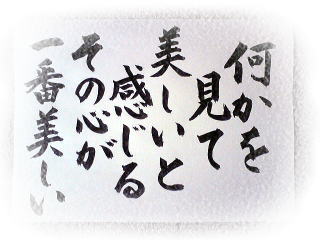 何かを
見て
美しいと
感じる
その心が
一番美しい